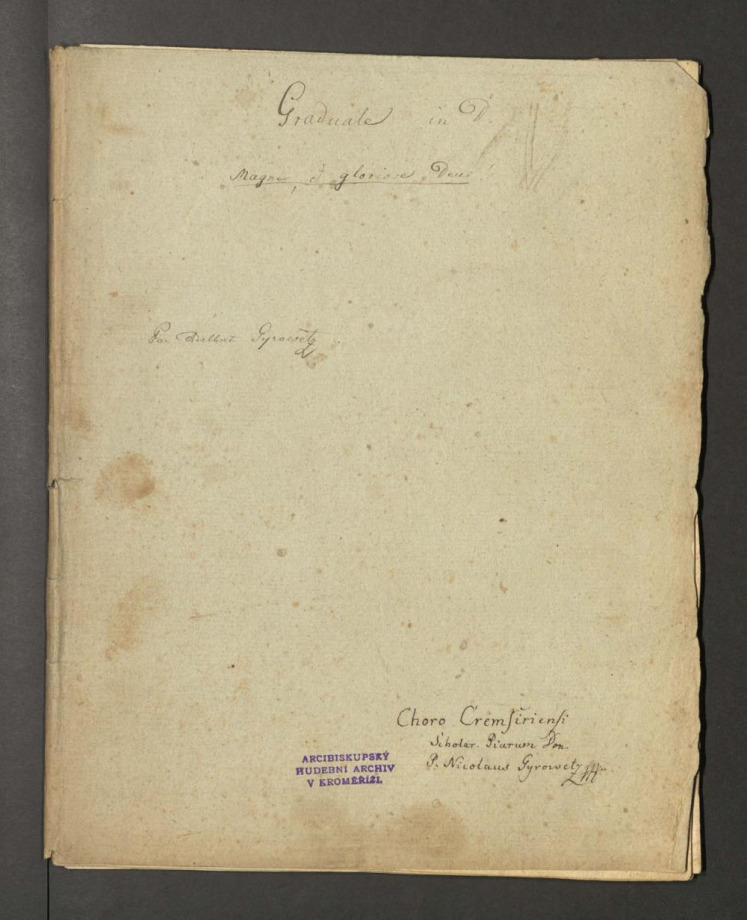 Graduale in D.
Magne, et gloriose Deus!
Par Adalbert Gyrowetz
Choro Cremsiriensi
Scholar. Piarum Don.
P. Nicolaus Gyrowetz
ARCIBISKUPSKÝ
HUDEBNÍ ARCHIV
V KROMĚŘÍŽI.